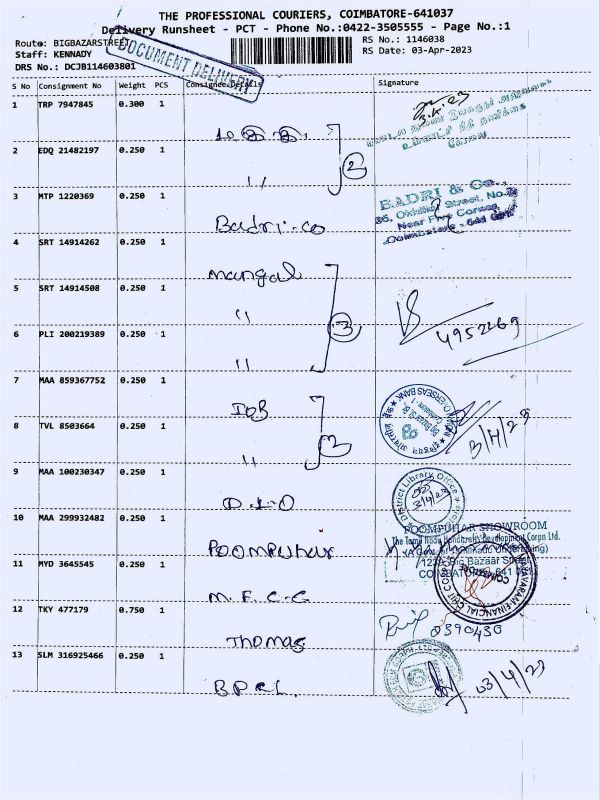 THE PROFESSIONAL COURIERS, COIMBATORE-641037
Delivery Runsheet - PCT - Phone No.:0422-3505555 - Page No.:1
Route: BIGBAZARSTREET
RS No.: 1146038
Staff: KENNADY
RS Date: 03-Apr-2023
DRS No.: DCJB114603801
DOCUMENT DELIVERY
S No Consignment No Weight PCS Consignee Details Signature
1 TRP 7947845 0.300 1
2 EDQ 21482197 0.250 1 "
2
3 MTP 1220369 0.250 1 Badri.co
BADRI & Co.,
Street, No.
Near Five Corner,
Coimbatore - 641 001
4 SRT 14914262 0.250 1 Mangal
5 SRT 14914508 0.250 1 "
3
4952269
6 PLI 200219389 0.250 1 "
7 MAA 859367752 0.250 1 IOB
OVERSEAS BANK
8 TVL 8503664 0.250 1 "
2
3/4/23
9 MAA 100230347 0.250 1 D.L.O
District Library Office
3/4/23
10 MAA 299932482 0.250 1 Poompuhar
POOMPUHAR SHOWROOM
The Tamil Nadu Handicrafts Development Corpn Ltd.
(A Govt. of Tamilnadu Undertaking)
Big Bazaar Street
COIMBATORE - 641 001
11 MYD 3645545 0.250 1 M.F.C.C
FINANCIAL CHIT CORP
12 TKY 477179 0.750 1 Thomas
0390430
13 SLM 316925466 0.250 1 BPCL.
03/4/23